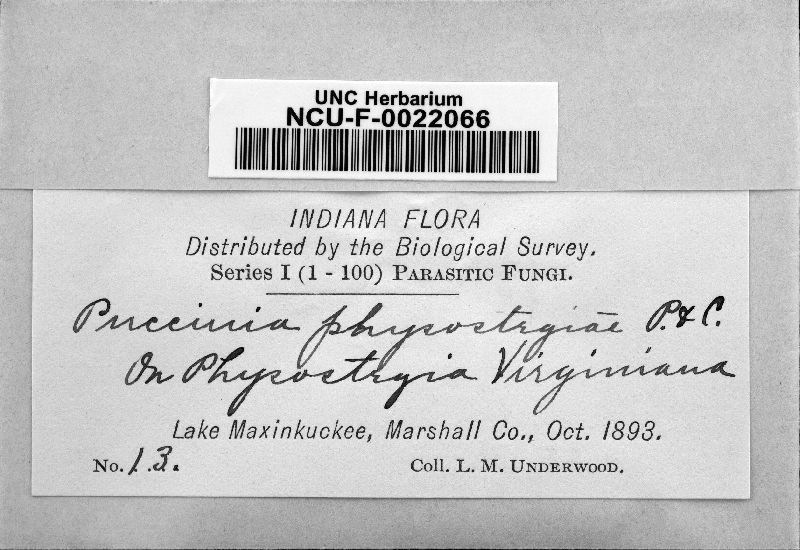 UNC Herbarium
NCU-F-0022066
INDIANA FLORA
Distributed by the Biological Survey.
Series I (1 - 100) PARASITIC FUNGI.
Puccinia physostegiae P. & C.
On Physostegia Virginiana
Lake Maxinkuckee, Marshall Co., Oct. 1893.
No. 13.
Coll. L. M. UNDERWOOD.